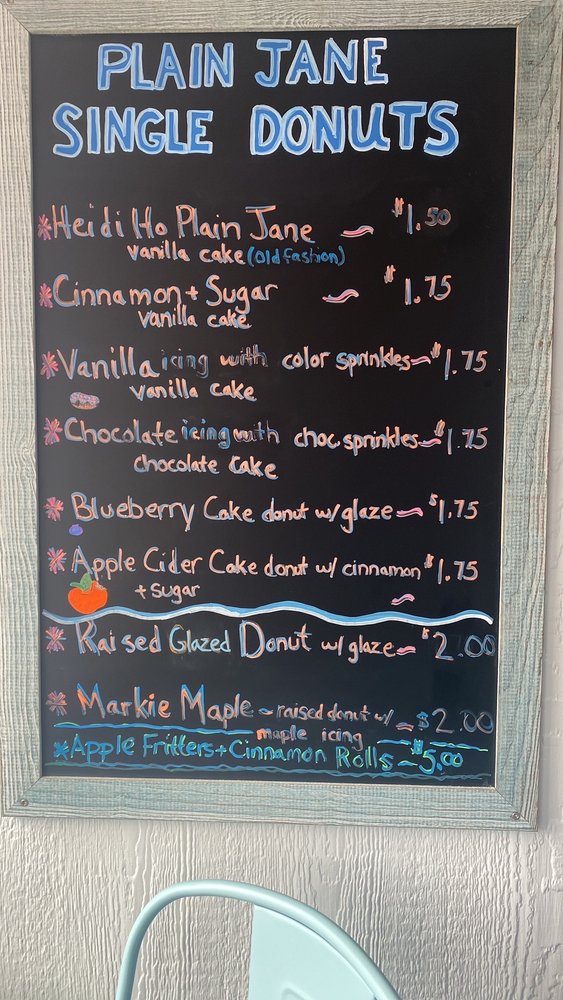 PLAIN JANE
SINGLE DONUTS
*Heidi Ho Plain Jane ~ $1.50
vanilla cake (old fastion)
*Cinnamon + Sugar ~ $1.75
vanilla cake
*Vanilla icing with color sprinkles~$1.75
vanilla cake
*Chocolate icing with choc sprinkles~$1.75
chocolate cake
*Blueberry Cake donut w/glaze~$1.75
*Apple Cider Cake donut w/ cinnamon $1.75
+ sugar ~
*Raised Glazed Donut w/glaze~$2.00
*Markie Maple ~ raised donut w/ ~$2.00
maple icing
*Apple Fritters + Cinnamon Rolls ~$5.00